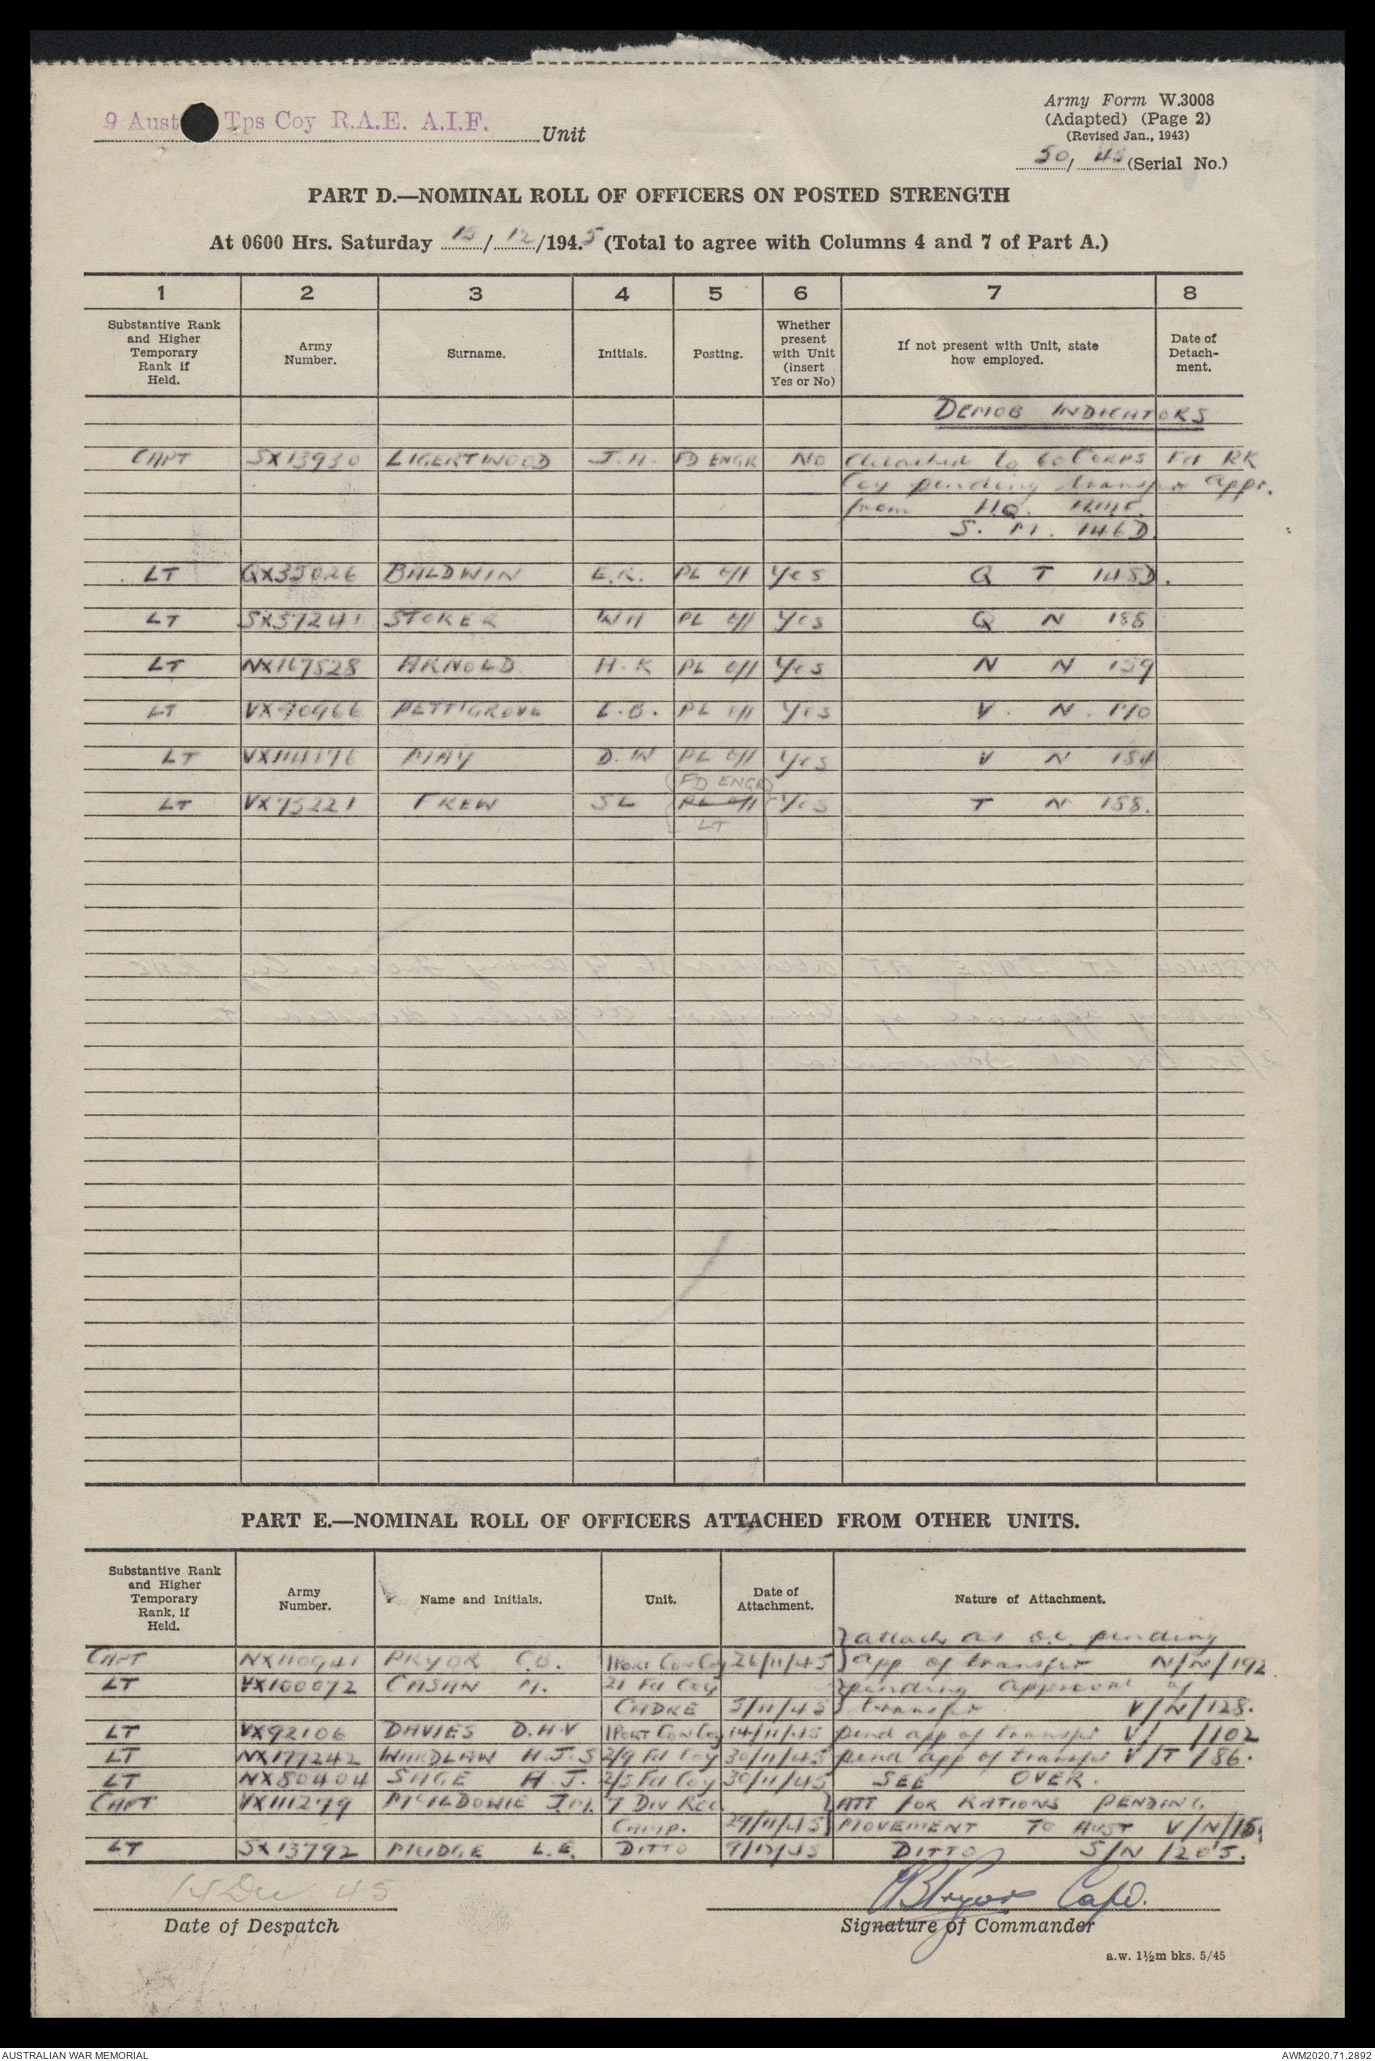 9 Aust Tps Coy R.A.E. A.I.F. Unit
Army Form W.3008
(Adapted) (Page 2)
(Revised Jan., 1943)
50/45 (Serial No.)
PART D.—NOMINAL ROLL OF OFFICERS ON POSTED STRENGTH
At 0600 Hrs. Saturday 15/12/1945 (Total to agree with Columns 4 and 7 of Part A.)
1 2 3 4 5 6 7 8
Substantive Rank and Higher Temporary Rank if Held.
Army Number.
Surname.
Initials.
Posting.
Whether present with Unit (insert Yes or No)
If not present with Unit, state how employed.
Date of Detach-ment.
DEMOB INDICATORS
CAPT SX13930 LIGERTWOOD J.H. FD ENGR NO detached to 60 Corps Fd PK
Coy pending transfer appr.
from HQ
S. M. 146D
LT QX35026 BALDWIN E.R. PL Off Yes Q T 145D.
LT SX37241 STOKER WH PL Off Yes Q N 188
LT NX167528 ARNOLD H.K PL Off Yes N N 159
LT VX70966 PETTIGROVE L.B. PL Off Yes V. N. 170
LT VX114176 MAY D.W PL Off Yes V N 184
FD ENGR
LT VX75221 FREW SL PL Off Yes T N 158.
LT
PART E.—NOMINAL ROLL OF OFFICERS ATTACHED FROM OTHER UNITS.
Substantive Rank and Higher Temporary Rank, if Held.
Army Number.
Name and Initials.
Unit.
Date of Attachment.
Nature of Attachment.
attach as o.c. pending
CAPT NX110941 PRYOR C.B. 1 PORT CON Coy 26/11/45 app of transfer N/N/192
LT VX100072 CASAN M. 21 Fd Coy pending approval of
CADRE 5/11/45 transfer V/N/128.
LT VX92106 DAVIES D.H.V 1 PORT CON Coy 14/11/45 pend app of transfer V/ /102
LT NX177242 WARDLAW H.J.S 2/9 Fd Coy 30/11/45 pend app of transfer V/T/86.
LT NX80404 SAGE H.J. 2/5 Fd Coy 30/11/45 SEE OVER.
CAPT VX111279 McILDOWIE J.M. 7 Div Rec ATT for RATIONS PENDING
Camp. 29/11/45 MOVEMENT TO AUST V/N/15
LT SX13792 MUDGE L.E. DITTO 9/12/45 DITTO S/N/205.
14 Dec 45
CBPryor Capt.
Date of Despatch
Signature of Commander
a.w. 1½m bks. 5/45
AUSTRALIAN WAR MEMORIAL
AWM2020.71.2892